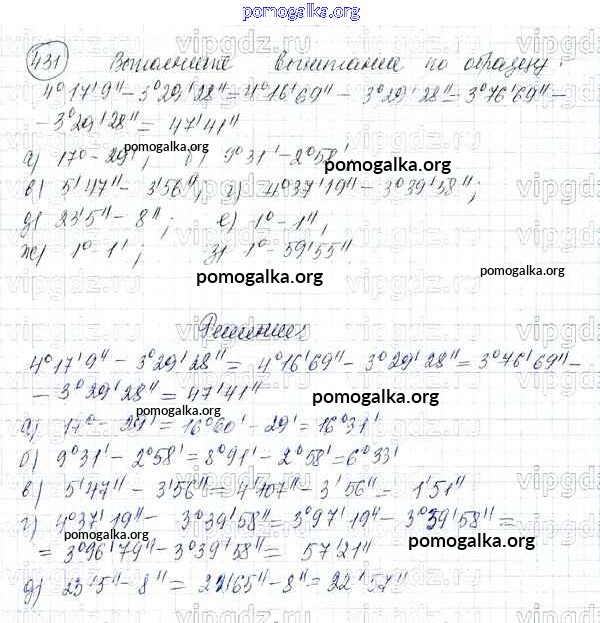 pomogalka.org
431 Выполните вычитание по образцу:
4°17'9" - 3°29'28" = 4°16'69" - 3°29'28" = 3°76'69" -
- 3°29'28" = 47'41"
а) 17° - 29'; б) 9°31' - 2°58'
pomogalka.org
в) 5'47" - 3'56"; г) 4°37'19" - 3°39'58";
д) 23'5" - 8"; е) 1° - 1";
ж) 1° - 1'; з) 1° - 59'55"
pomogalka.org
pomogalka.org
Решение:
4°17'9" - 3°29'28" = 4°16'69" - 3°29'28" = 3°76'69" -
- 3°29'28" = 47'41"
pomogalka.org
pomogalka.org
а) 17° - 29' = 16°60' - 29' = 16°31'
б) 9°31' - 2°58' = 8°91' - 2°58' = 6°33'
в) 5'47" - 3'56" = 4'107" - 3'56" = 1'51"
г) 4°37'19" - 3°39'58" = 3°97'19" - 3°39'58" =
= 3°96'79" - 3°39'58" = 57'21"
pomogalka.org
д) 23'5" - 8" = 22'65" - 8" = 22'57"
pomogalka.org